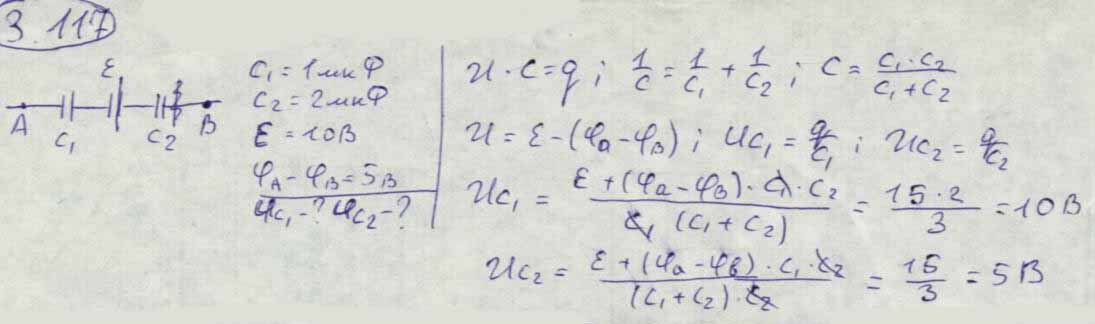 3.117
ε
A C₁ C₂ B
C₁ = 1 мкФ
C₂ = 2 мкФ
ε = 10 В
φA - φB = 5 В
UC₁ - ? UC₂ - ?
U · C = q ; 1/C = 1/C₁ + 1/C₂ ; C = C₁ · C₂ / C₁ + C₂
U = ε - (φa - φB) ; UC₁ = q/C₁ ; UC₂ = q/C₂
UC₁ = ε + (φa - φB) · C₁ · C₂ / C₁ (C₁ + C₂) = 15 · 2 / 3 = 10 В
UC₂ = ε + (φa - φB) · C₁ · C₂ / (C₁ + C₂) · C₂ = 15 / 3 = 5 В